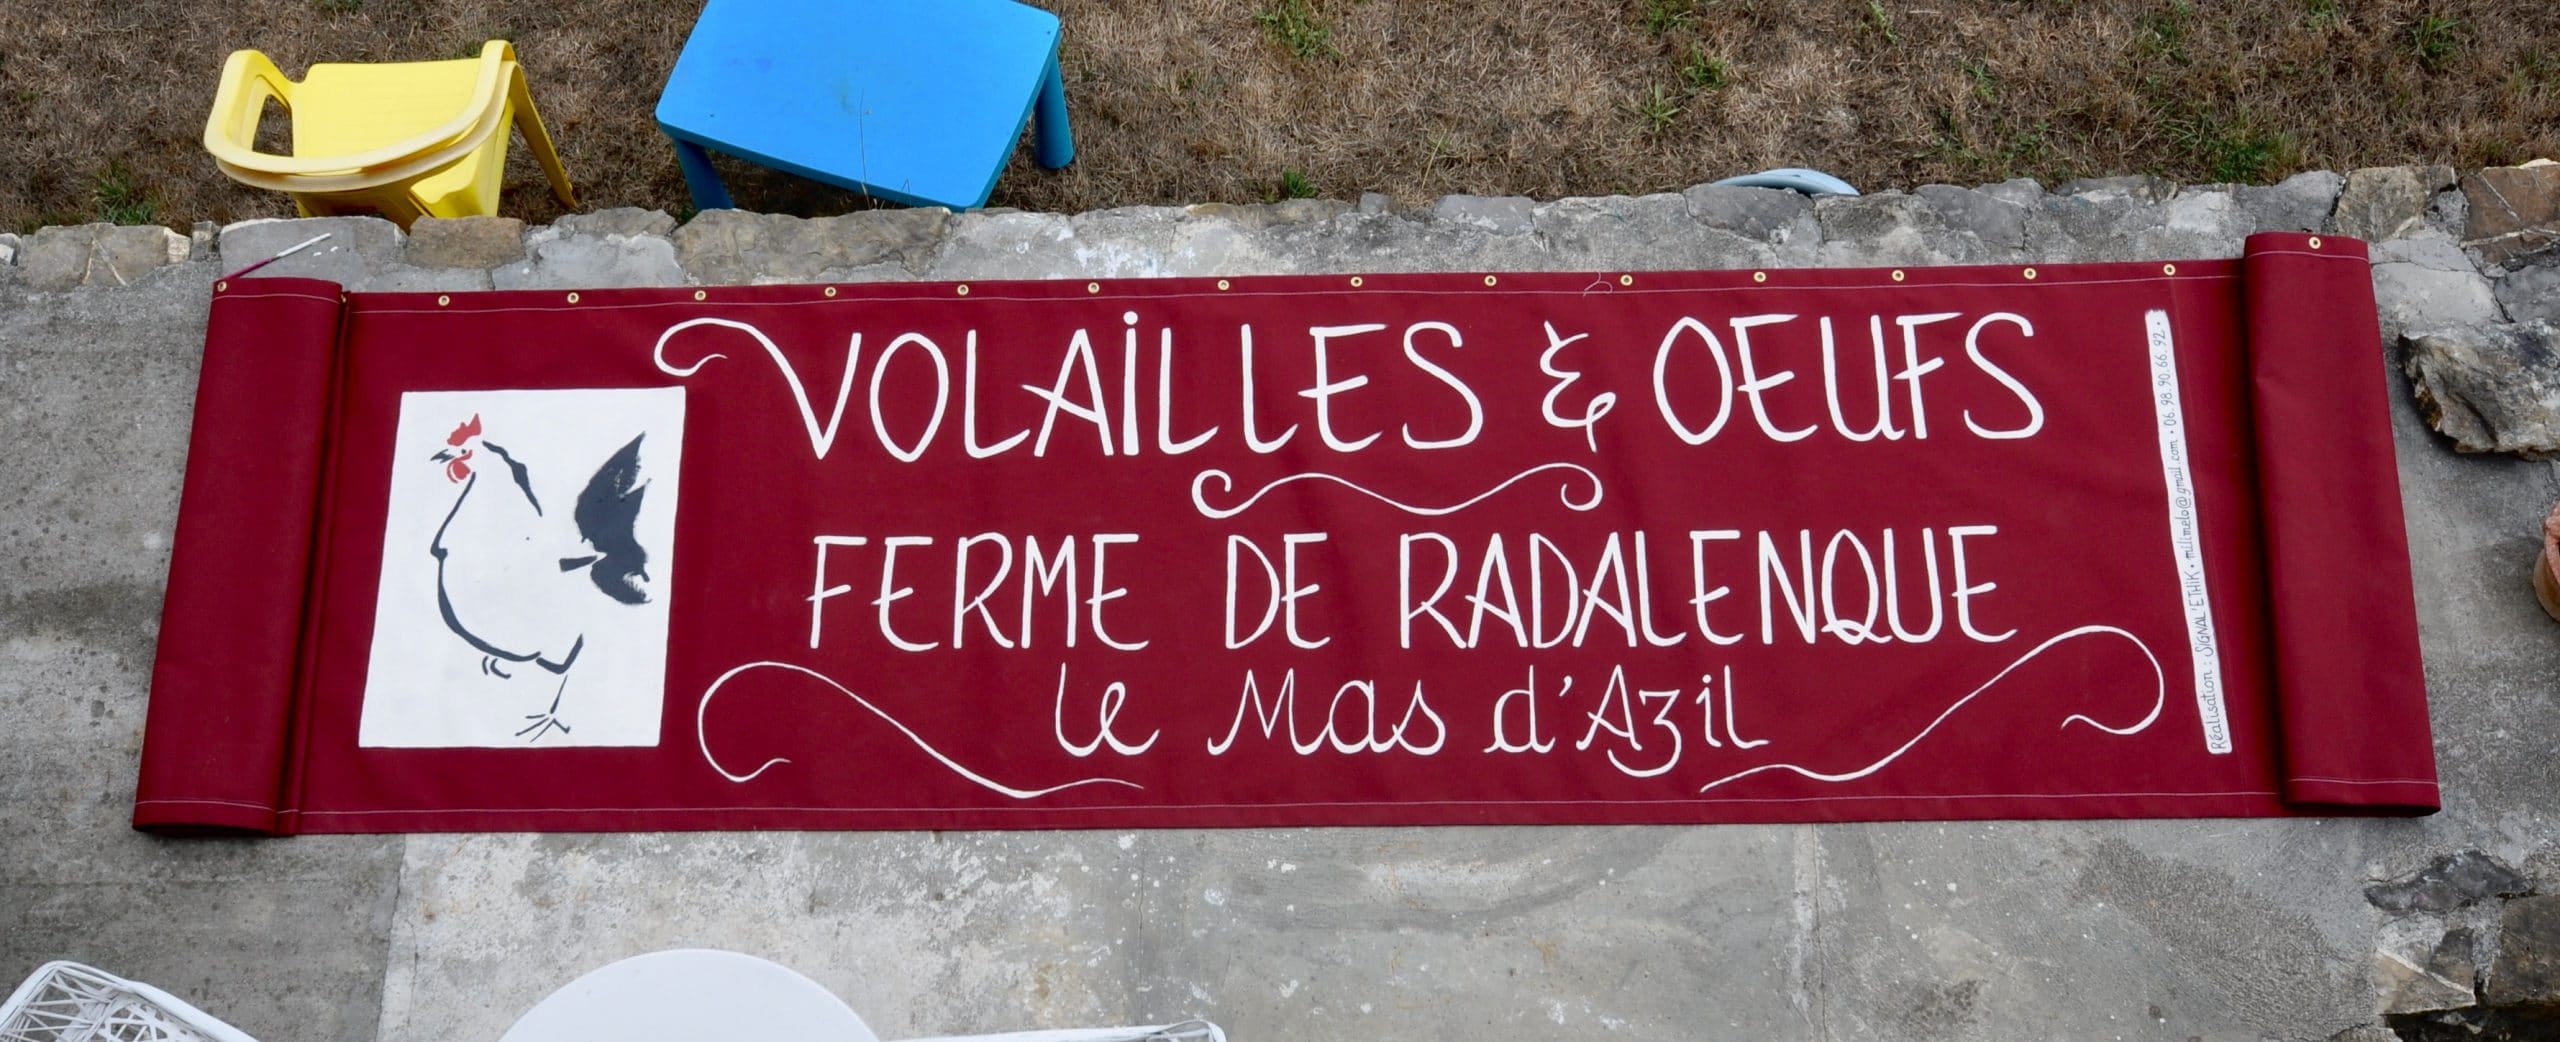 VOLAiLLES & OEUFS
FERME DE RADALENQUE
le Mas d'Azil
Réalisation : SIGNAL'ETHIK • milimelo@gmail.com • 06.98.90.66.92 •